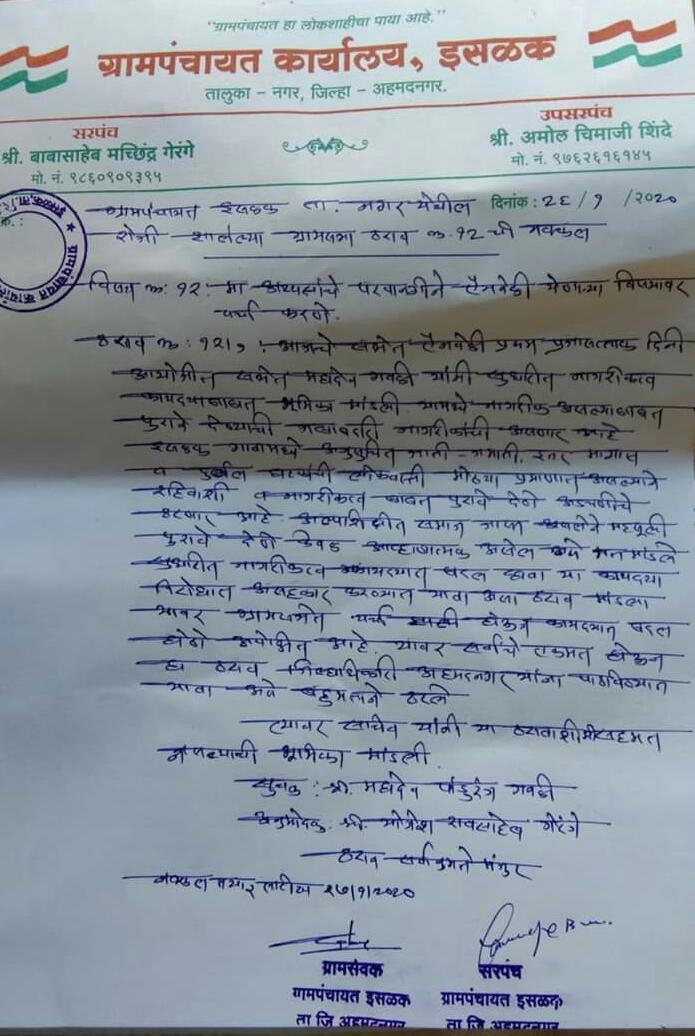 "ग्रामपंचायत हा लोकशाहीचा पाया आहे."
ग्रामपंचायत कार्यालय, इसळक
तालुका - नगर, जिल्हा - अहमदनगर.
सरपंच
श्री. बाबासाहेब मच्छिंद्र गेरंगे
मो. नं. ९८६०९०९३९५
उपसरपंच
श्री. अमोल चिमाजी शिंदे
मो. नं. ९७६२६१६१४५
ग्रामपंचायत इसळक ता. नगर येथील दिनांक: २६ / १ /२०२०
रोजी झालेल्या ग्रामसभा ठराव क्र. १२ ची नक्कल
विषय क्र: १२: मा अध्यक्षांचे परवानगीने ऐनवेळी येणाऱ्या विषयावर
चर्चा करणे.
ठराव क्र: १२।१ : आजचे सभेत ऐनवेळी प्रथम प्रजासत्ताक दिनी
आयोजीत सभेत महादेव गवळी यांनी सुधारीत नागरीकत्व
कायद्याबाबत भूमिका मांडली. यामध्ये नागरीक असल्याबाबत
पुरावे देण्याची जबाबदारी नागरीकांची असणार आहे
इसळक गावामध्ये अनुसुचित जाती-जमाती, इतर मागास
व दुर्बल घटकांची लोकवस्ती मोठ्या प्रमाणात असल्याने
रहिवाशी व नागरीकत्व बाबत पुरावे देणे अडचणीचे
ठरणार आहे. अल्पशिक्षीत समाज असलेने महसूली
पुरावे देणे केवळ आव्हानात्मक असेल असे मत मांडले
सुधारीत नागरीकत्व कायद्यात बदल व्हावा या कायद्या
विरोधात असहकार करण्यात यावा असा ठराव मांडला
यावर ग्रामसभेत चर्चा होऊन कायद्यात बदल
होणे अपेक्षीत आहे. यावर सर्वांचे एकमत होऊन
हा ठराव जिल्हाधिकारी अहमदनगर यांना पाठविण्यात
यावा असे बहुमताने ठरले
त्यावर सचिव यांनी या ठरावाशी मी सहमत
नसल्याची भूमिका मांडली.
सुचक : श्री. महादेव पांडुरंग गवळी
अनुमोदक: श्री. योगेश रावसाहेब गेरंगे
ठराव सर्वानुमते मंजुर
नक्कल तयार तारीख २७/१/२०२०
ग्रामसेवक
ग्रामपंचायत इसळक
ता जि अहमदनगर
सरपंच
ग्रामपंचायत इसळक
ता जि अहमदनगर